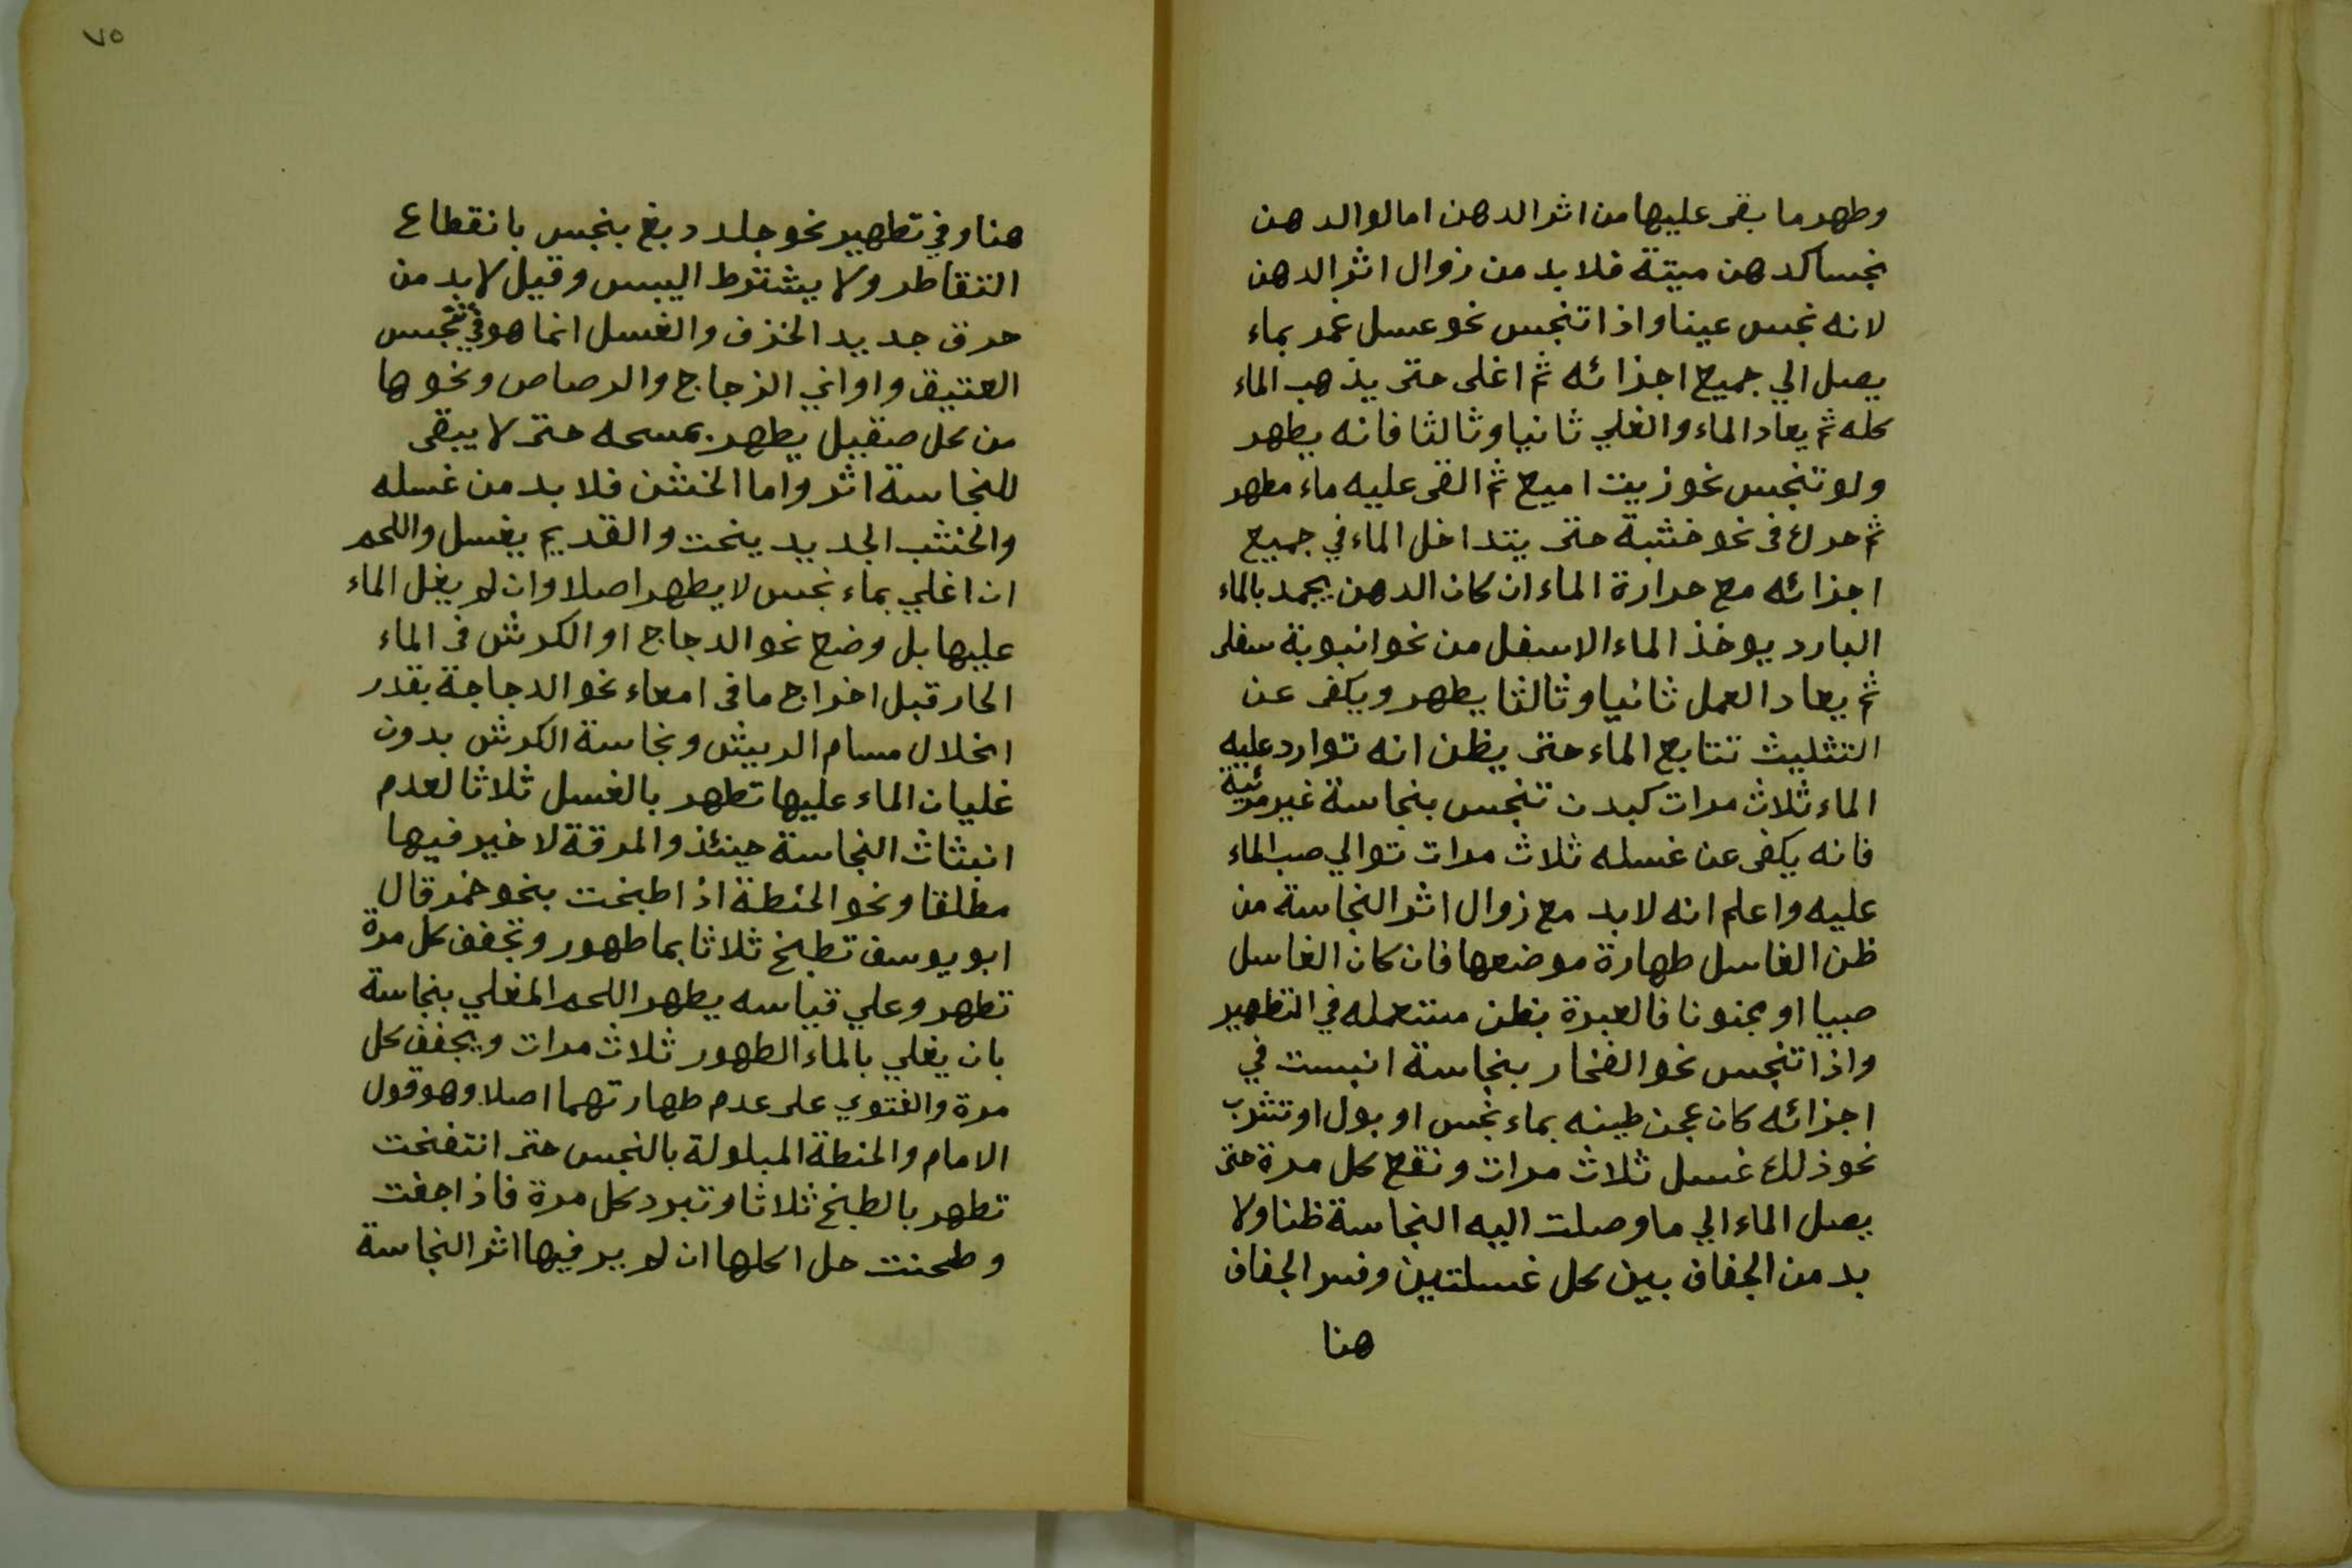 وطهر ما بقى عليها من اثر الدهن اما لو الدهن
نجسا كدهن ميتة فلا بد من زوال اثر الدهن
لانه نجس عينا واذا تنجس نحو عسل غمر بماء
يصل الي جميع اجزائه ثم اغلى حتى يذهب الماء
كله ثم يعاد الماء والغلي ثانيا وثالثا فانه يطهر
ولو تنجس نحو زيت اميع ثم القى عليه ماء مطهر
ثم حرك فى نحو خشبة حتى يتداخل الماء في جميع
اجزائه مع حرارة الماء ان كان الدهن يجمد بالماء
البارد يوخذ الماء الاسفل من نحو انبوبة سفلى
ثم يعاد العمل ثانيا وثالثا يطهر ويكفى عن
التثليث تتابع الماء حتى يظن انه توارد عليه
الماء ثلاث مرات كبدن تنجس بنجاسة غير مرئية
فانه يكفى عن غسله ثلاث مرات توالي صب الماء
عليه واعلم انه لابد مع زوال اثر النجاسة من
ظن الغاسل طهارة موضعها فان كان الغاسل
صبيا او مجنونا فالعبرة بظن مستعمله في التطهير
واذا تنجس نحو الفخار بنجاسة انبست في
اجزائه كان عجن طينه بماء نجس او بول او تشرب
نحو ذلك غسل ثلاث مرات ونقع كل مرة حتى
يصل الماء الي ما وصلت اليه النجاسة ظنا ولا
بد من الجفاف بين كل غسلتين وفسر الجفاف
هنا
٧٥
هنا وفي تطهير نحو جلد دبغ بنجس بانقطاع
التقاطر ولا يشترط اليبس وقيل لا بد من
حرق جديد الخزف والغسل انما هو في تنجس
العتيق واواني الزجاج والرصاص ونحوها
من كل صقيل يطهر بمسحه حتى لا يبقى
للنجاسة اثر واما الخشن فلا بد من غسله
والخشب الجديد ينحت والقديم يغسل واللحم
ان اغلي بماء نجس لا يطهر اصلا وان لم يغل الماء
عليها بل وضع نحو الدجاج او الكرش فى الماء
الحار قبل اخراج ما فى امعاء نحو الدجاجة بقدر
انحلال مسام الريش ونجاسة الكرش بدون
غليان الماء عليها تطهر بالغسل ثلاثا لعدم
انبثاث النجاسة حينئذ والمرقة لا خير فيها
مطلقا ونحو الحنطة اذا طبخت بنحو خمر قال
ابو يوسف تطبخ ثلاثا بما طهور وتجفف كل مرة
تطهر وعلي قياسه يطهر اللحم المغلي بنجاسة
بان يغلي بالماء الطهور ثلاث مرات ويجفف كل
مرة والفتوي على عدم طهارتهما اصلا وهو قول
الامام والحنطة المبلولة بالنجس حتى انتفخت
تطهر بالطبخ ثلاثا وتبرد كل مرة فاذا جفت
وطحنت حل اكلها ان لم ير فيها اثر النجاسة